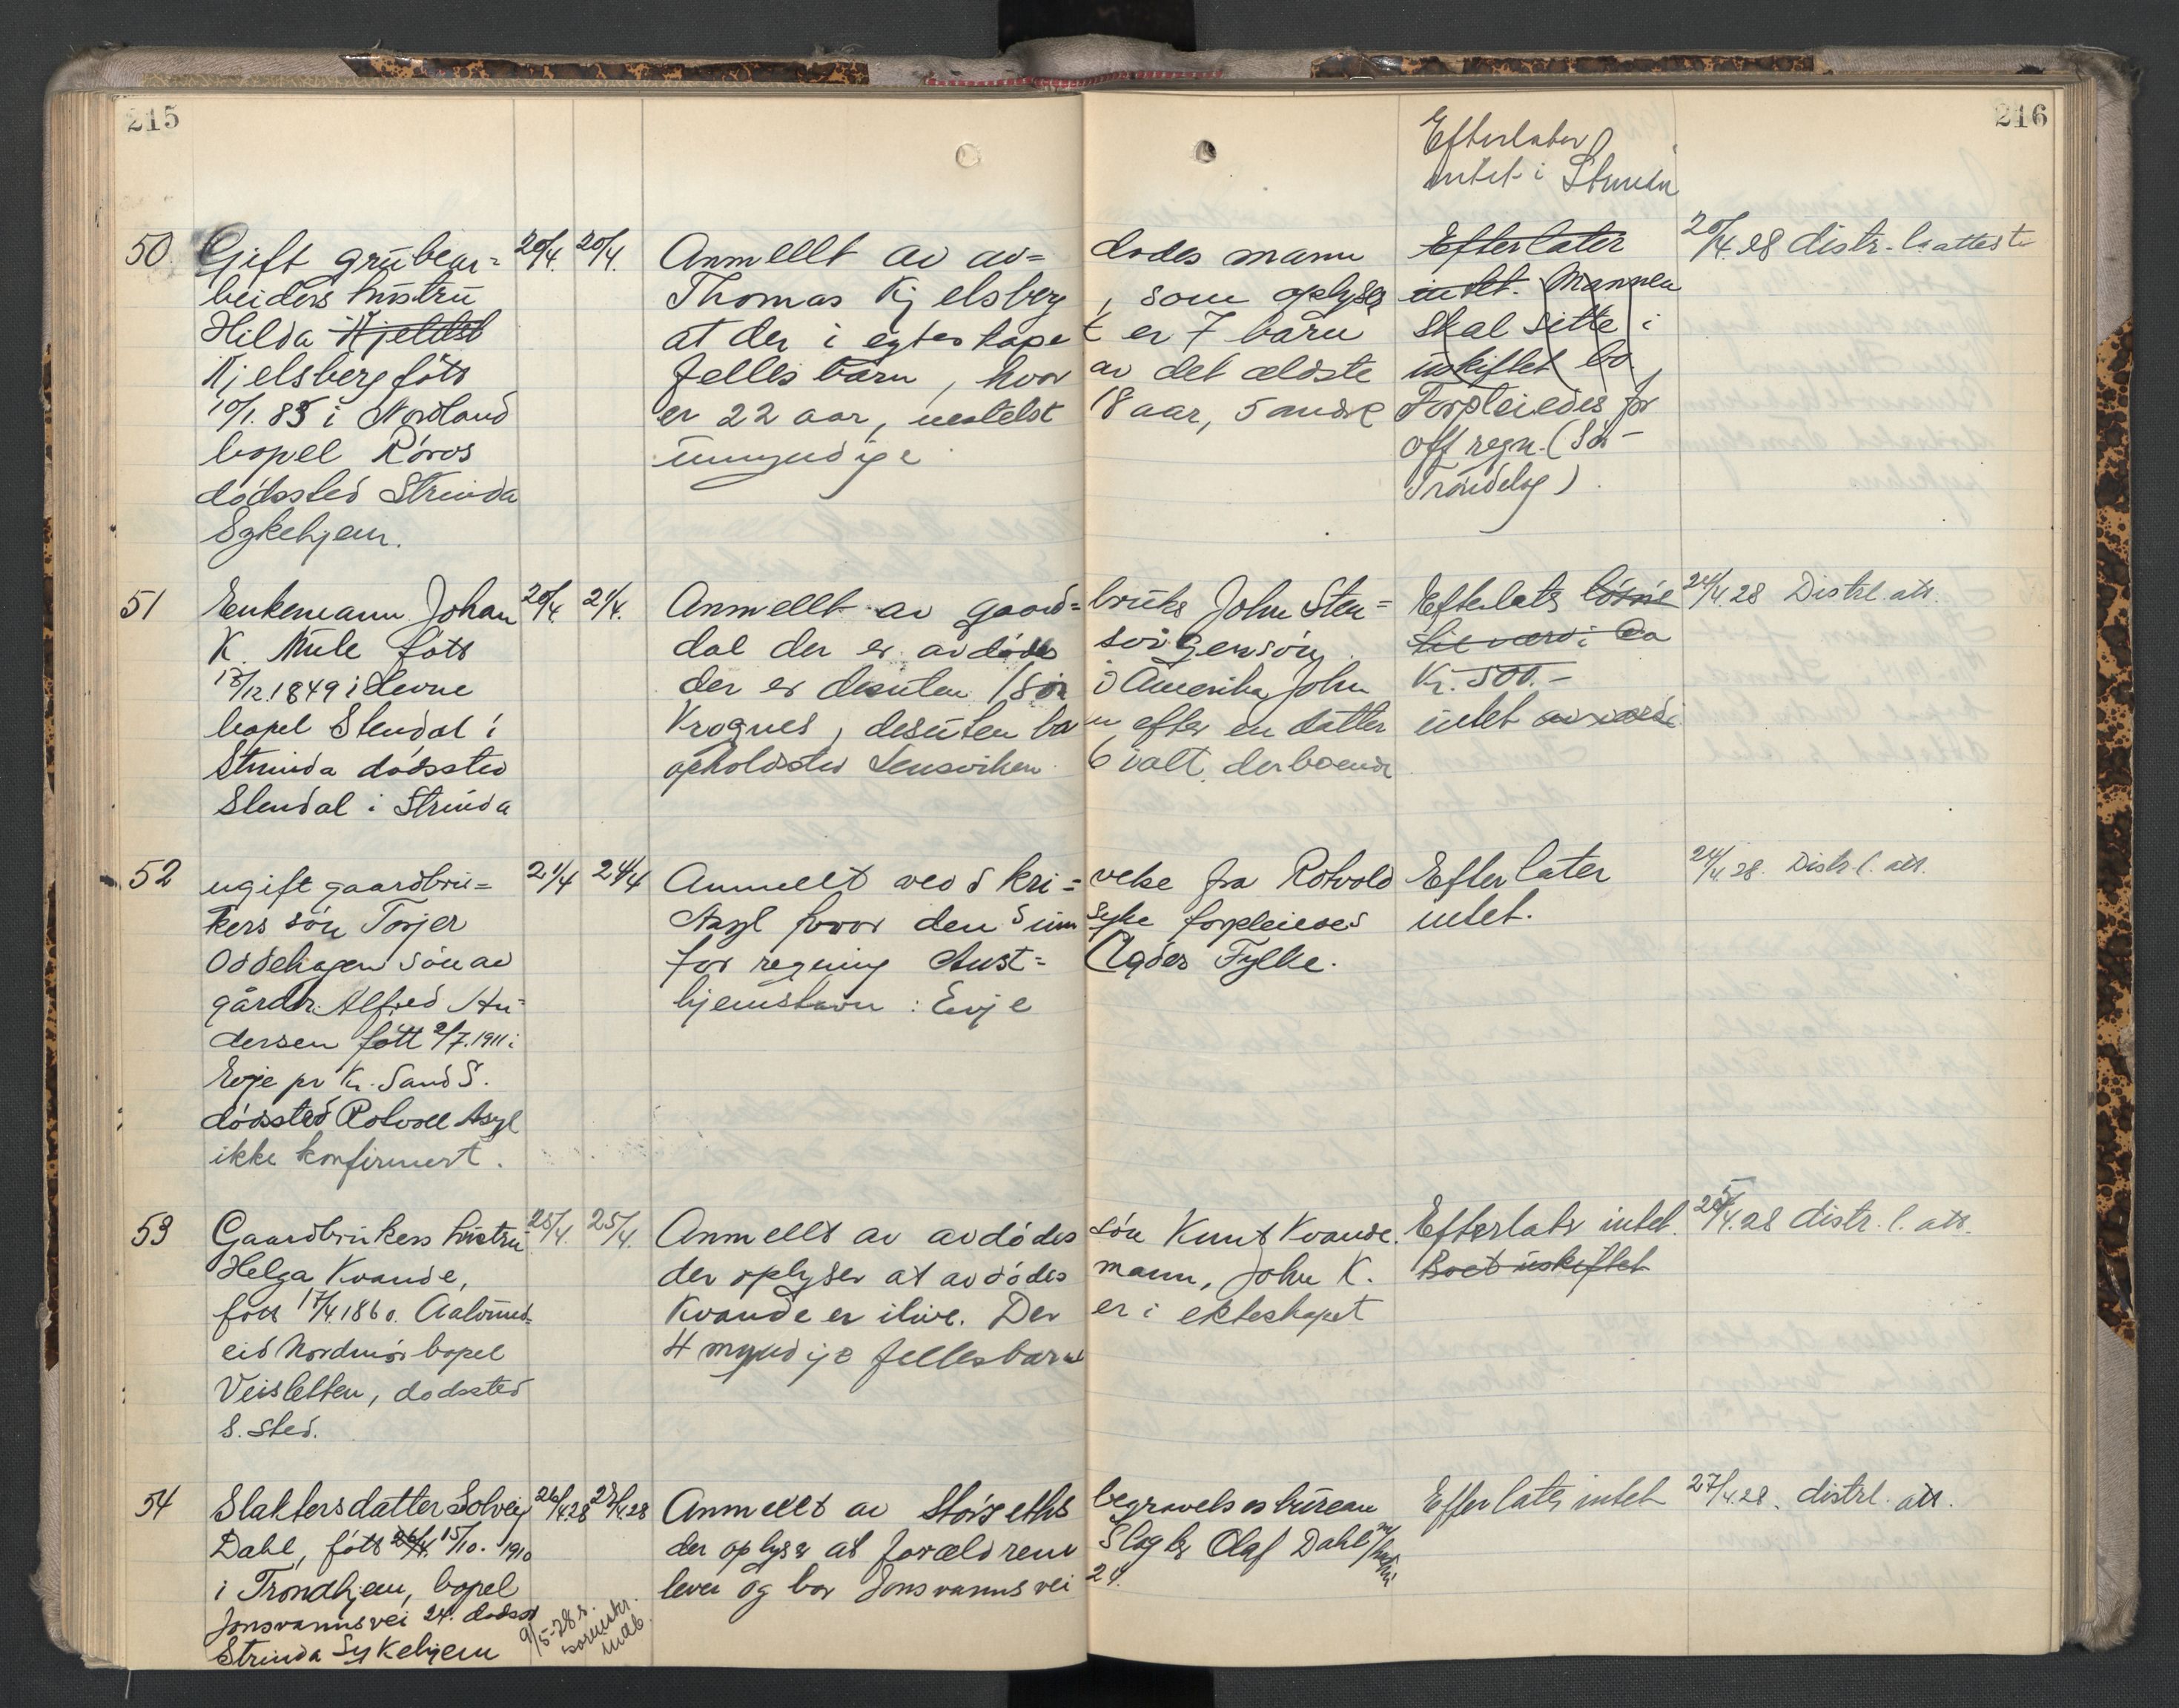 215
216
Efterlater
intet i Strinda
50. Gift grubear= 20/4. 20/4. Anmellt av av= dödes mann Efterlater 20/4.28 distr. l. attest
beiders hustru Thomas Kjelsberg , som oplyser intet. Mannen
Hilda Kjeldsb at der i egteskape t er 7 barn skal sitte i
Kjelsberg født felles barn, hvor av det ældste uskiftet bo.
10/1. 85 i Nordland er 22 aar, nestelst 18 aar, 5 andre Forpleiedes for
bopel Röros umyndige off regn. (Sör-
dödssted Strinda Tröndelag).
Sykehjem.
51 Enkemann Johan 20/4. 21/4. Anmellt av gaard= bruks John Sten= Efterlater lösöre 24/4.28 Distr.l. att.
K. Mule født dal der er avdödes svigersön. til verdi Ca
13/12.1849 i Levne der er desuten 1 sön i Amerika John Kr. 500.-
bopel Stendal i Krognes, desuten ba rn efter en datter intet av verdi
Strinda dödssted opholdsted Lensviken 6 ialt. derboende
Stendal i Strinda
52 ugift gaardbru= 21/4 24/4 Anmellt ved skri= velse fra Rotvold Efterlater 24/4.28. Distr l. att.
kers sön Torjer Asyl hvor den sinn syke forpleiedes intet.
Oddehagen sön av for regning Aust= Agder Fylke.
gårdbr. Alfred An= hjemstavn: Evje
dersen født 2/7.1911 i
Evje pr Kr. Sand S.
dödssted Rotvoll Asyl
ikke konfirmert.
53 Gaardbrukers hustru 25/4. 25/4. Anmellt av avdödes sön Knut Kvande. Efterlater intet. 25/4.28 distr. l. att.
Helga Kvande, der oplyser at avdödes mann, John K. Boet uskiftet
født 17/4.1860. Aalvund= Kvande er ilive. Der er i ekteskapet
eid Nordmör bopel 4 myndige fellesbarn
Veisletten, dodssted
s. sted.
54 Slaktersdatter Solveig 26/4.28 27/4.28 Anmellt av Störseths begravelsesbureau Efterlater intet 27/4.28. distr.l. att.
Dahl, født 26/4. 15/10. 1910 der oplyser at forældrene Slagter Olaf Dahl m/hustru
i Trondhjem, bopel lever og bor Jonsvannsvei 24.
Jonsvannsvei 24. dödsst
Strinda Sykehjem 9/5-28 s.